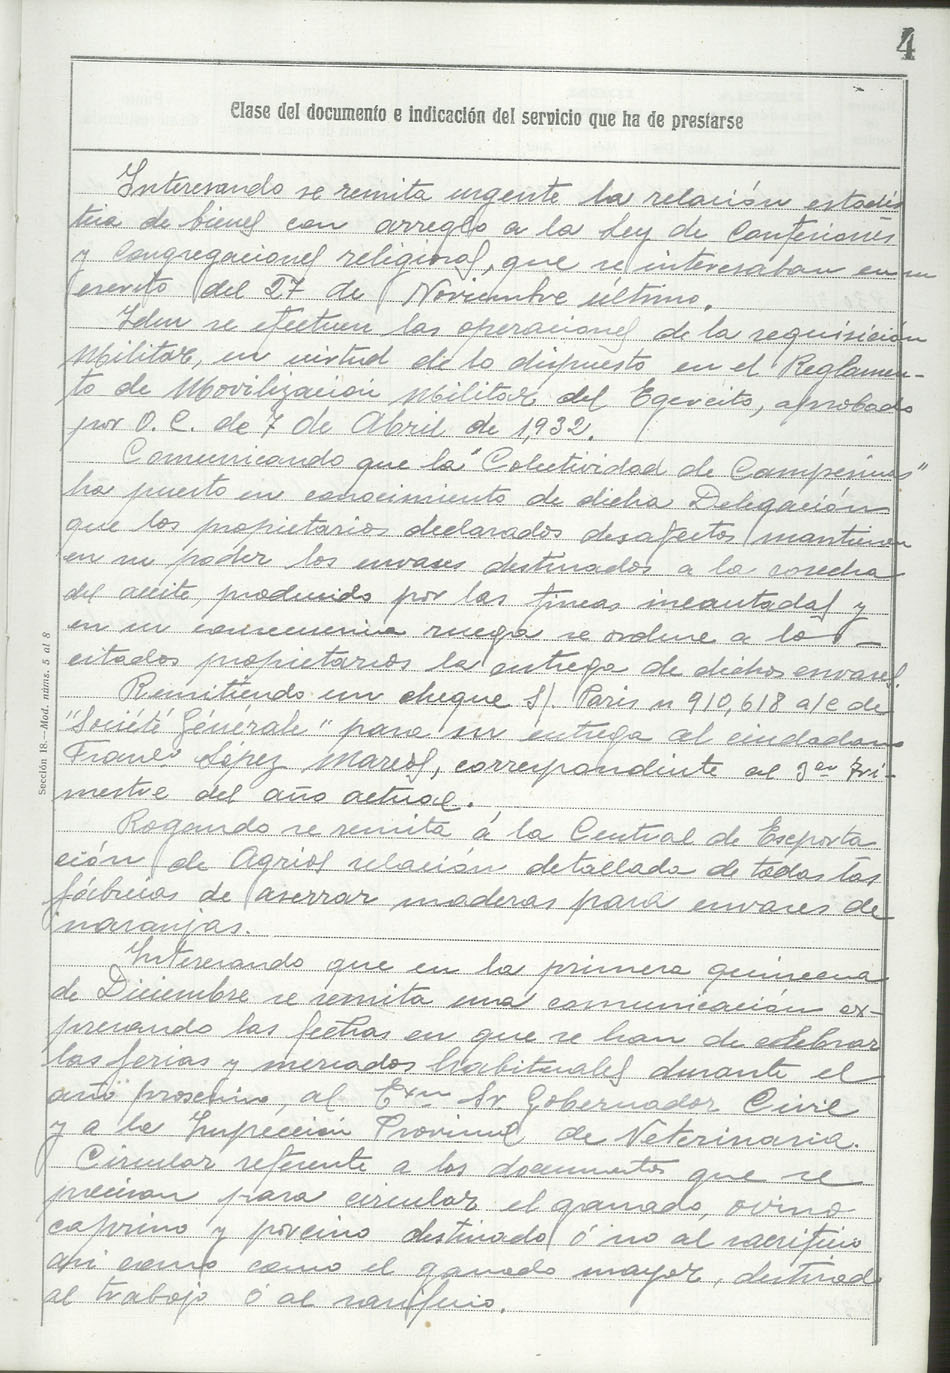 4
Clase del documento e indicación del servicio que ha de prestarse
Interesando se remita urgente la relación estadís
tica de bienes con arreglo a la Ley de Confesiones
y Congregaciones religiosas, que se interesaban en su
escrito del 27 de Noviembre último.
Idem se efectuen las operaciones de la requisición
Militar, en virtud de lo dispuesto en el Reglamen-
to de Movilización Militar del Egercito, aprobado
por O. C. de 7 de Abril de 1,932.
Comunicando que la "Colectividad de Campesinos"
ha puesto en conocimiento de dicha Delegación
que los propietarios declarados desafectos mantienen
en su poder los envases destinados a la cosecha
del aceite, producido por las fincas incautadas y
en su consecuencia ruega se ordene a los
citados propietarios la entrega de dichos envases.
Remitiendo un cheque S/. Paris n 910,618 a/c de
"Société Générale" para su entrega al ciudadano
López Mares, correspondiente al 3er Tri-
mestre del año actual.
Rogando se remita á la Central de Exporta
ción de Agrios relación detallada de todas las
fábricas de aserrar maderas para envases de
naranjas.
Interesando que en la primera quincena
de Diciembre se remita una comunicación ex-
presando las fechas en que se han de celebrar
las ferias y mercados habituales durante el
año proximo, al Exmo Sr. Gobernador Civil
y a la Inspección Provincial de Veterinaria.
Circular referente a los documentos que se
precisan para circular el ganado, ovino
caprino y porcino destinado ó no al sacrificio
asi como como el ganado mayor, destinado
al trabajo ó al sacrificio.
Sección 18.—Mod. núms. 5 al 8